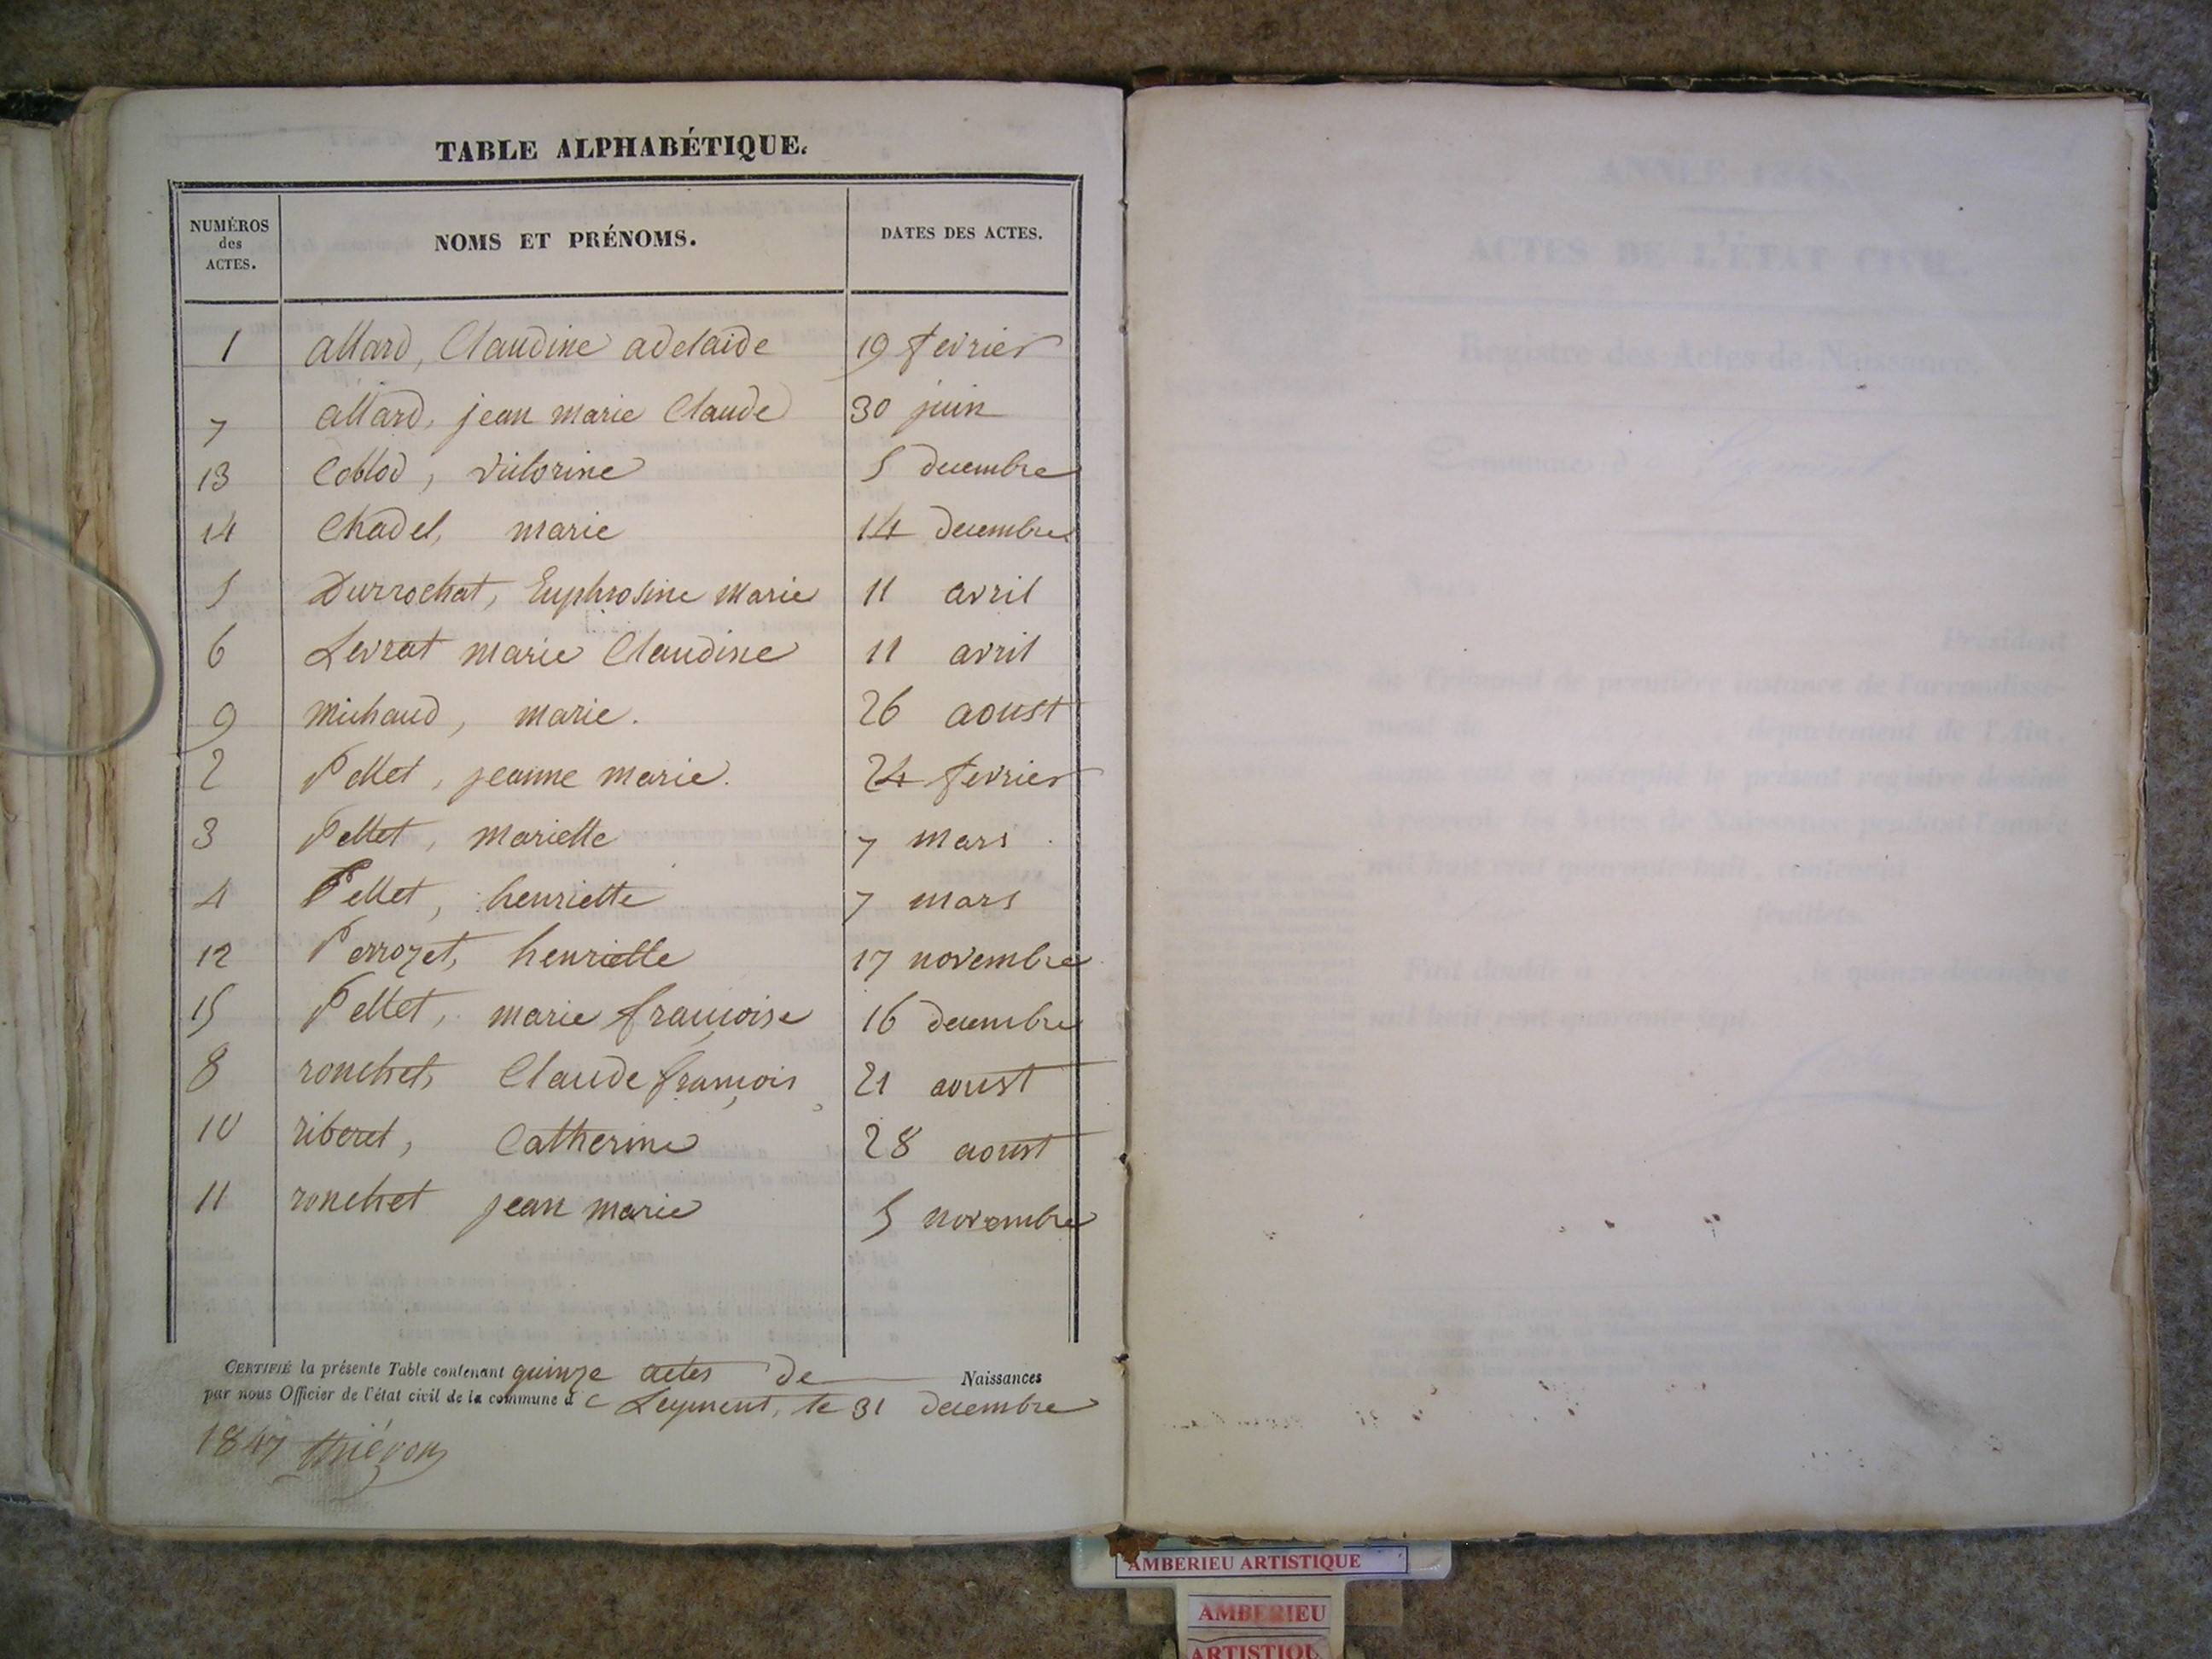 TABLE ALPHABÉTIQUE.
NUMÉROS des ACTES. NOMS ET PRÉNOMS. DATES DES ACTES.
1 allard, Claudine adelaide 19 fevrier
7 allard, jean marie Claude 30 juin
13 Coblod, victorine 5 decembre
14 Chadel, marie 14 decembre
5 Durrochat, Euphrosine Marie 11 avril
6 Levrat marie Claudine 11 avril
9 michaud, marie. 26 aoust
2 Pellet, jeanne marie. 24 fevrier
3 Pellet, mariette 7 mars
4 Pellet, henriette 7 mars
12 Perrozet, henriette 17 novembre
15 Pellet, marie françoise 16 decembre
8 ronchet, Claude françois 21 aoust
10 riberet, Catherine 28 aoust
11 ronchet jean marie 5 novembre
CERTIFIÉ la présente Table contenant quinze actes de Naissances
par nous Officier de l'état civil de la commune d e Leyment, le 31 decembre
1847
ANNÉE 1848.
ACTES DE L'ÉTAT CIVIL.
Registre des Actes de Naissance.
Commune d
Président
du Tribunal de première instance de l'arrondisse-
ment de département de l'Ain,
le présent registre destiné
à recevoir les Actes de Naissance pendant l'année
mil huit cent quarante-huit, contenant
feuillets.
Fait double à , le quinze décembre
mil huit cent quarante-sept.
AMBERIEU ARTISTIQUE
AMBERIEU
ARTISTIQU